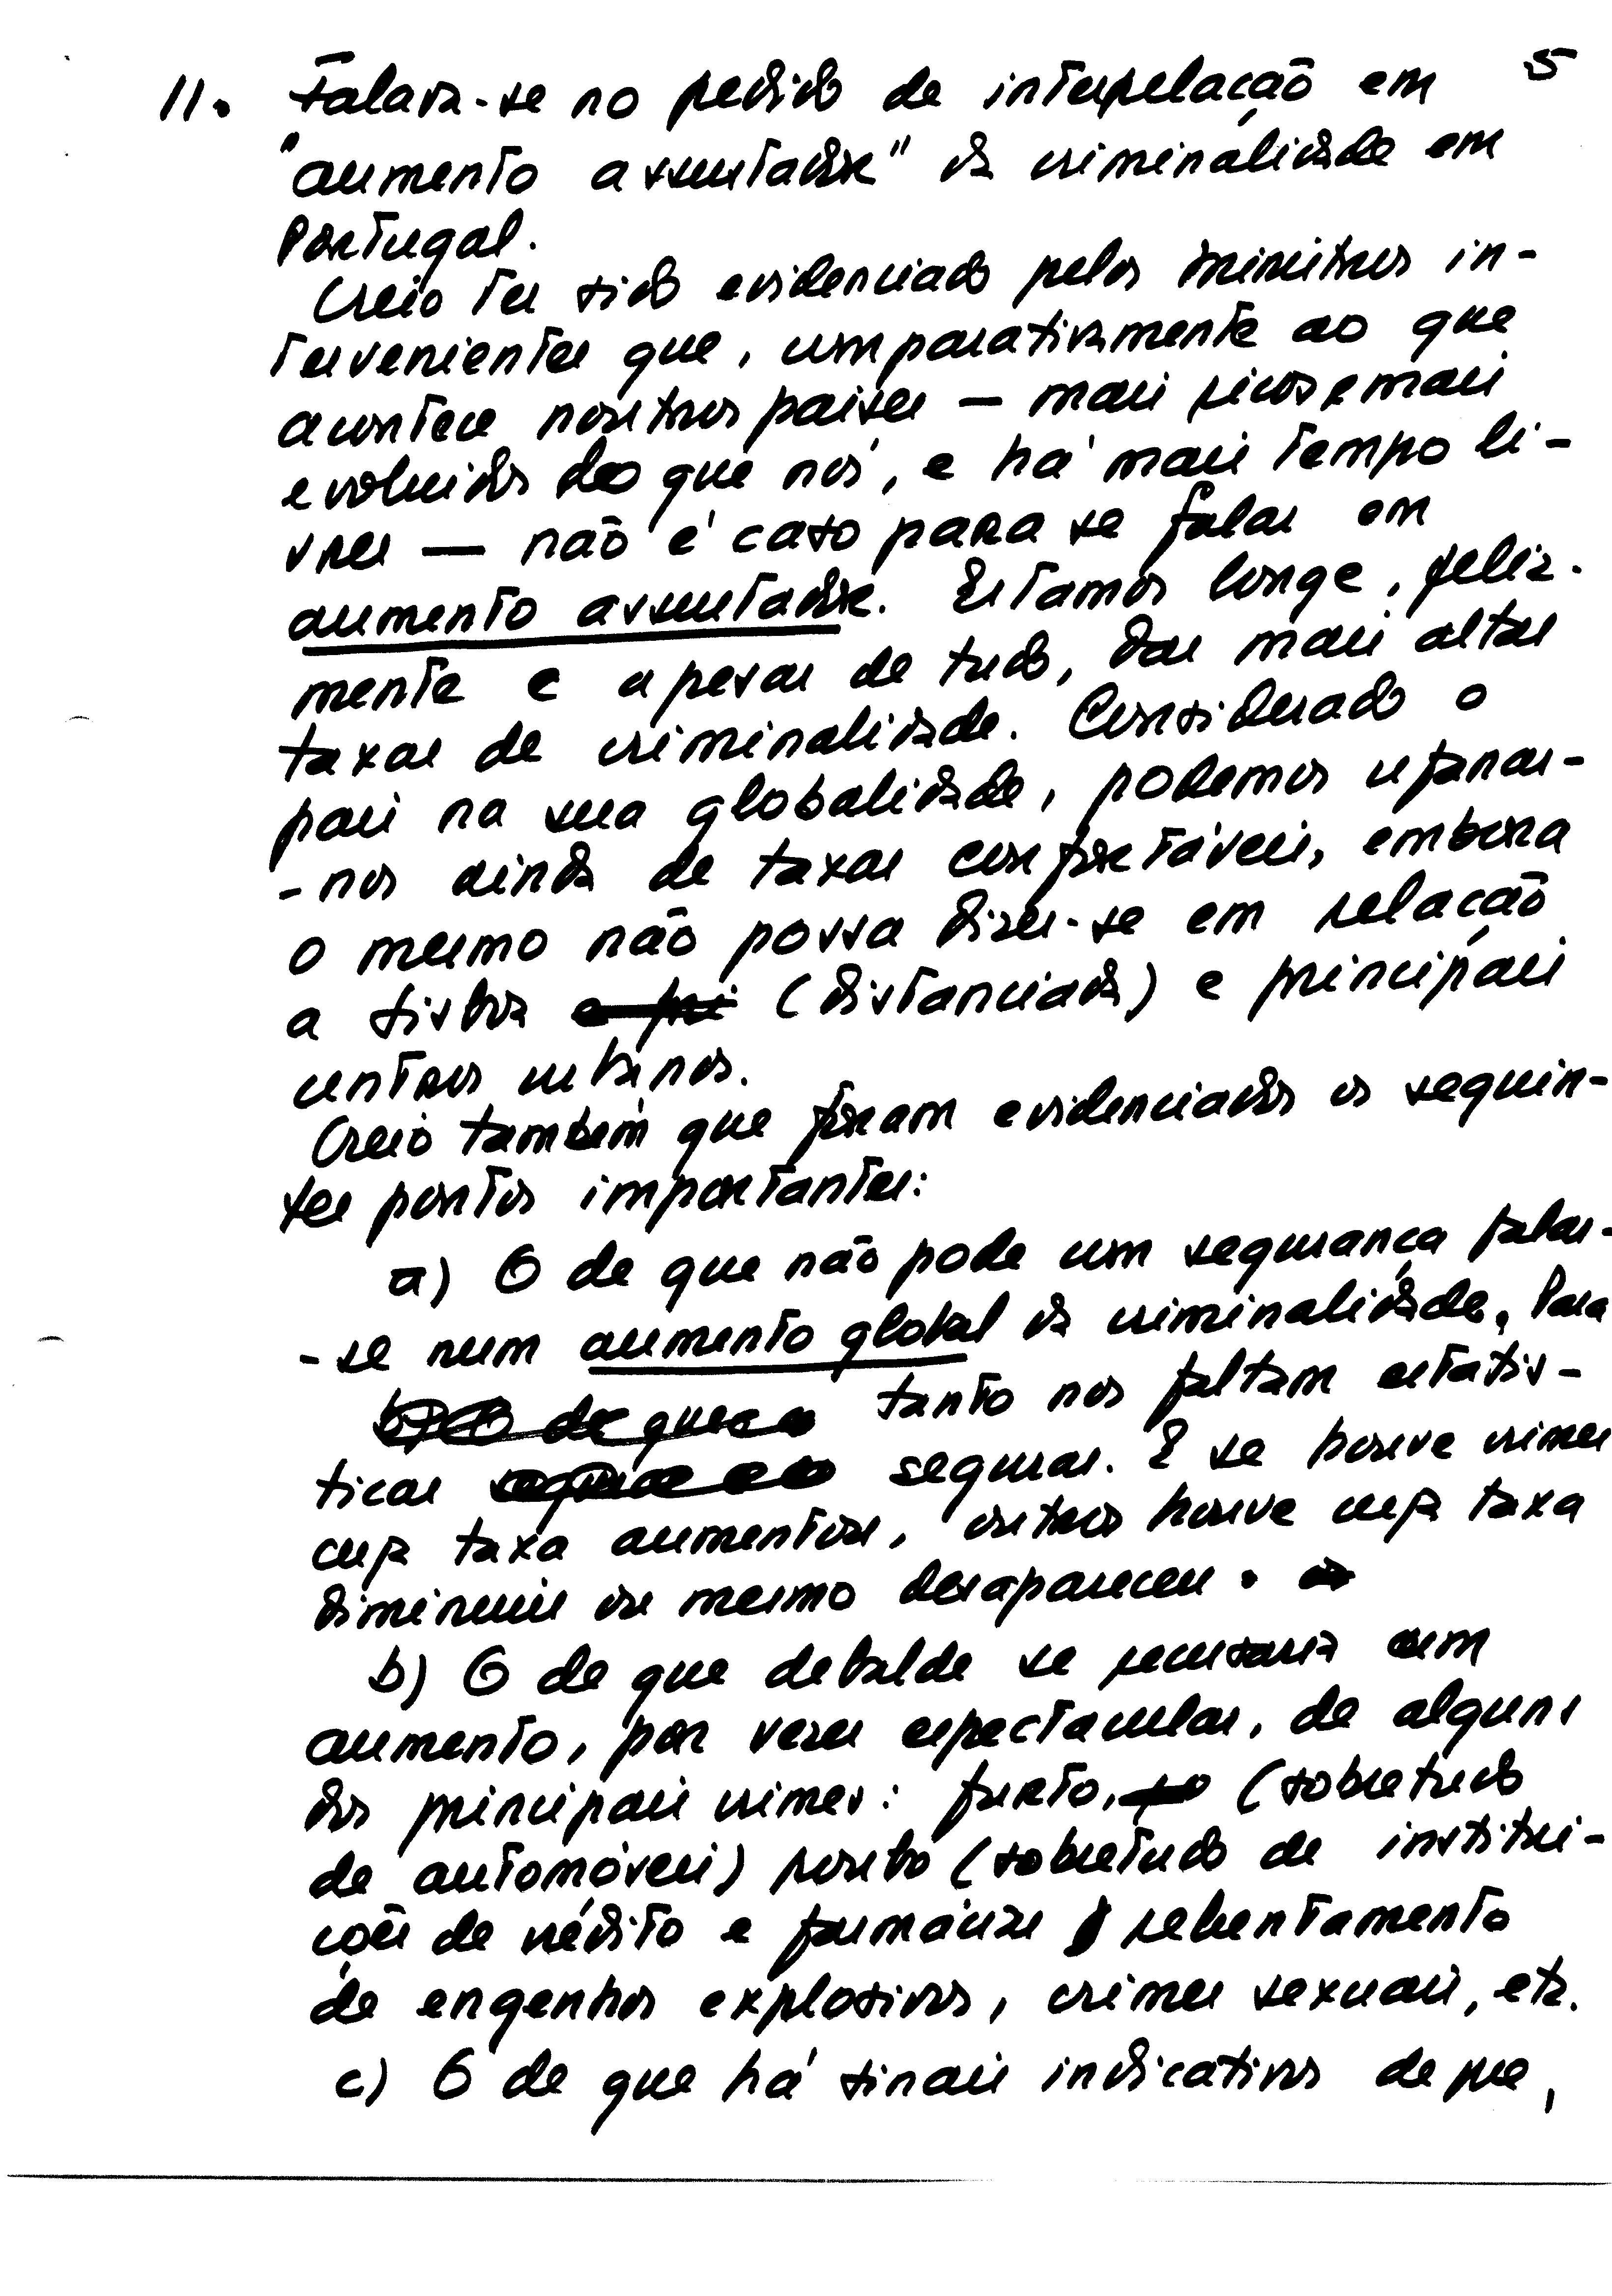 5
11. Falava-se no pedido de interpelação em
"aumento assustador" da criminalidade em
Portugal.
Creio ter sido evidenciado pelos ministros in-
tervenientes que, comparativamente ao que
acontece noutros países — mais ricos e mais
evoluidos do que nós, e há mais tempo li-
vres — não é caso para se falar em
aumento assustador. Estamos longe, feliz-
mente e apesar de tudo, das mais altas
taxas de criminalidade. Considerado o
país na sua globalidade, podemos ufanar-
-nos ainda de taxas confortáveis, embora
o mesmo não possa dizer-se em relação
a Lisboa (distanciada) e principais
centros urbanos.
Creio também que foram evidenciados os seguin-
tes pontos importantes:
a) O de que não pode com segurança falar-
-se num aumento global da criminalidade. Para
tanto nos faltam estatís-
ticas seguras. E se houve crimes
cuja taxa aumentou, outros houve cuja taxa
diminuiu ou mesmo desapareceu.
b) O de que debalde se recusaria um
aumento, por vezes espectacular, de alguns
dos principais crimes: furto, (sobretudo
de automóveis) roubo (sobretudo de institui-
ções de crédito e farmácias) rebentamento
de engenhos explosivos, crimes sexuais, etc.
c) O de que há sinais indicativos de que,